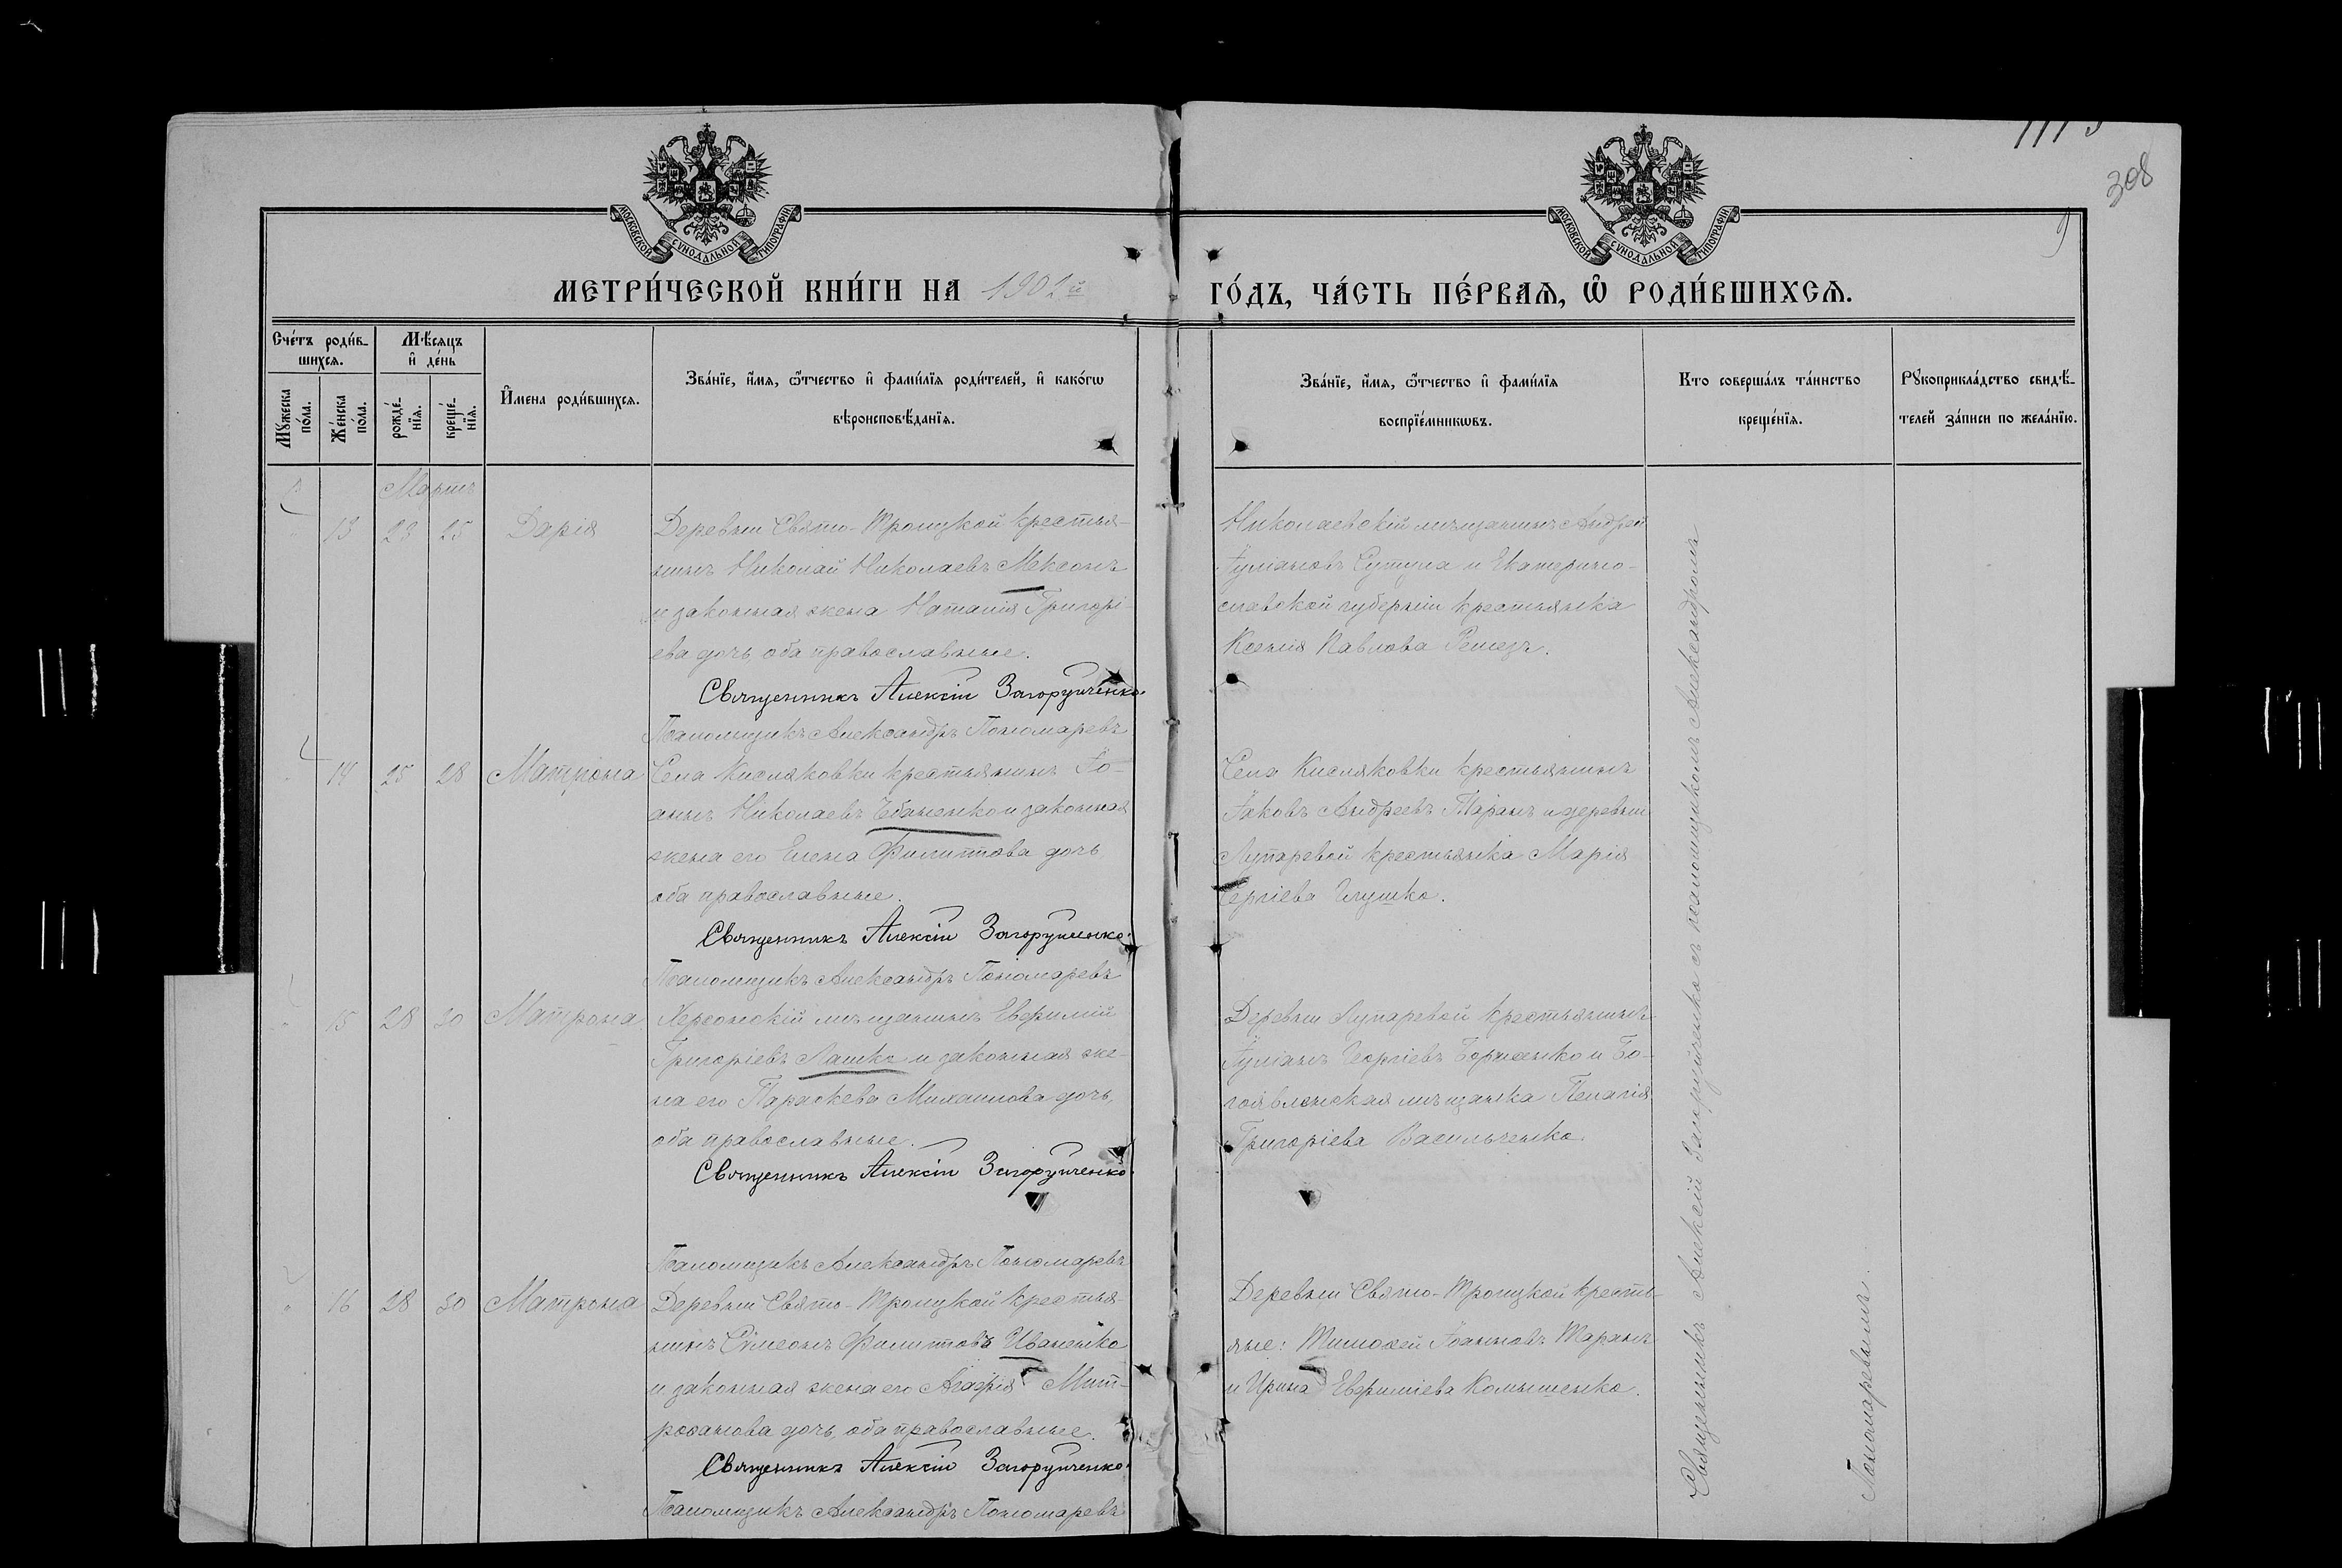 1113
308
9
МОСКОВСКОЙ СѴНОДАЛЬНОЙ ТИПОГРАФІИ
МОСКОВСКОЙ СѴНОДАЛЬНОЙ ТИПОГРАФІИ
МЕТРИ́ЧЕСКОЙ КНИ́ГИ НА 1902й
ГО́ДЪ, ЧА́СТЬ ПЕ́РВАѦ, Ѡ҆ РОДИ́ВШИХСѦ.
Сче́тъ роди́в-
шихсѧ.
Мѣ́сѧцъ
и҆ де́нь
Мꙋ́жеска по́ла.
Же́нска по́ла.
рожде́-нїѧ.
креще́-нїѧ.
И҆мена роди́вшихсѧ.
Зва́нїе, и҆́мѧ, ѻ҆́тчество и҆ фами́лїѧ роди́телей, и҆ како́гѡ
вѣроисповѣ́данїѧ.
Зва́нїе, и҆́мѧ, ѻ҆́тчество и҆ фами́лїѧ
воспрїе́мникѡвъ.
Кто соверша́лъ та́инство
креще́нїѧ.
Рꙋкоприкла́дство свидѣ́-
телей за́писи по жела́нїю.
Мартъ
13 23 25 Дарія
Деревни Свято-Троицкой крестья-
нинъ Николай Николаевъ Мексонъ
и законная жена Наталія Григорі-
ева дочь, оба православные.
Священникъ Алексій Загоруйченко.
Псаломщикъ Александръ Пономаревъ
Николаевскій мѣщанинъ Андрей
Іуліановъ Сутула и Екатерино-
славской губерніи крестьянка
Ксенія Павлова Ремезъ.
14 25 28 Матрона
Села Кисляковки крестьянинъ Іо-
аннъ Николаевъ Чабаненко и законная
жена его Елена Филиппова дочь
оба православные.
Священникъ Алексій Загоруйченко.
Псаломщикъ Александръ Пономаревъ
Села Кисляковки крестьянинъ
Іаковъ Андреевъ Таранъ и деревни
Лупаревой крестьянка Марія
Сергіева Глушко.
15 28 30 Матрона
Херсонскій мѣщанинъ Евѳимій
Григоріевъ Лашко и законная же-
на его Параскева Михаилова дочь,
оба православные.
Священникъ Алексій Загоруйченко.
Псаломщикъ Александръ Пономаревъ
Деревни Лупаревой крестьянинъ
Іуліанъ Георгіевъ Борисенко и Бо-
гоявленская мѣщанка Пелагія
Григоріева Васильченко.
16 28 30 Матрона
Деревни Свято-Троицкой крестья-
нинъ Сѵмеонъ Филипповъ Иваненко
и законная жена его Агафія Мит-
рофанова дочь, оба православные.
Священникъ Алексій Загоруйченко.
Псаломщикъ Александръ Пономаревъ
Деревни Свято-Троицкой кресть-
яне: Тимоѳей Іоанновъ Таранъ
и Ирина Евѳиміева Комышенко.
Священникъ Алексій Загоруйченко съ псаломщикомъ Александромъ
Пономаревымъ.